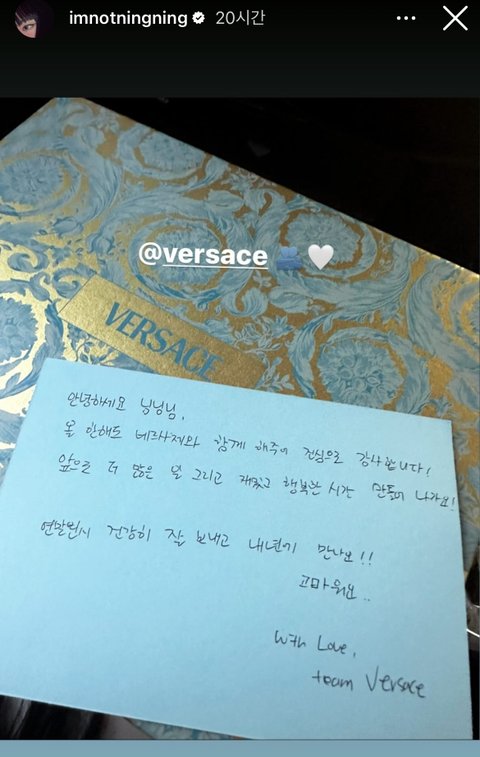 imnotningning 20시간
@versace
VERSACE
안녕하세요 닝닝님,
올 한해도 베르사체와 함께 해주어 진심으로 감사합니다!
앞으로 더 많은 일 그리고 재밌고 행복한 시간 만들어 나가요!
연말연시 건강히 잘 보내고 내년에 만나요!!
고마워요..
With Love,
team Versace